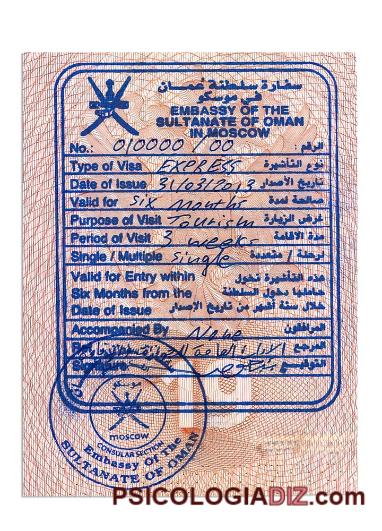 سفارة سلطنة عُمان
في موسكو
EMBASSY OF THE
SULTANATE OF OMAN
IN MOSCOW
No.: 010000 / 00 الرقم
Type of Visa EXPRESS نوع التأشيرة
Date of Issue 31/03/2013 تاريخ الأصدار
Valid for Six Months صالحة لمدة
Purpose of Visit Tourism غرض الزيارة
Period of Visit 3 weeks مدة الاقامة
Single / Multiple Single لرحلة / متعددة
Valid for Entry within هذه التأشيرة تخول
Six Months from the حاملها دخول السلطنة
Date of Issue خلال ستة أشهر من تاريخ الإصدار
Accompanied By Alone المرافقون
المرجع
19
MOSCOW
CONSULAR SECTION
Embassy of The
SULTANATE OF OMAN
PSICOLOGIADIZ.com